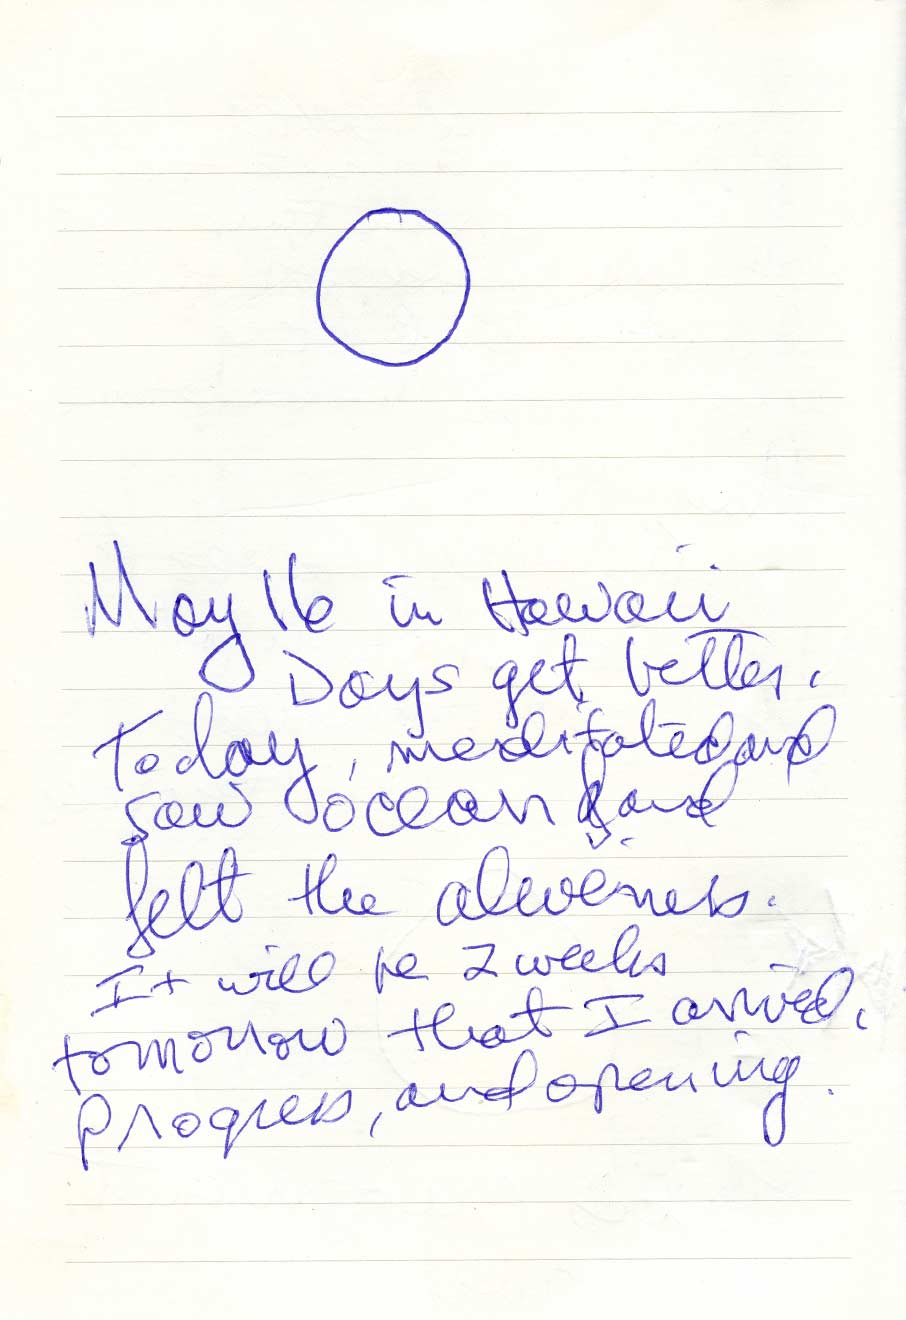 May 16 in Hawaii
Days get better.
Today, meditated and
saw ocean and
felt the aliveness.
It will be 2 weeks
tomorrow that I arrived.
Progress, and opening.